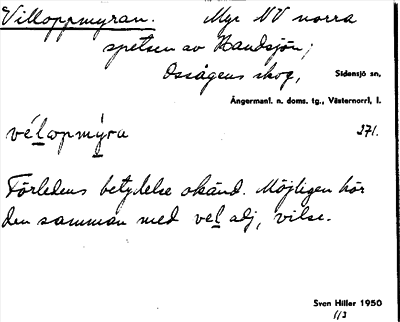 Villoppmyran. Myr NV norra
spetsen av Bandsjön;
Ossågens skog, Sidensjö sn,
Ångermanl. n. doms. tg., Västernorrl, l.
vélopmýra 271.
Förledens betydelse okänd. Möjligen hör
den samman med vel adj, vilse.
Sven Hiller 1950
113